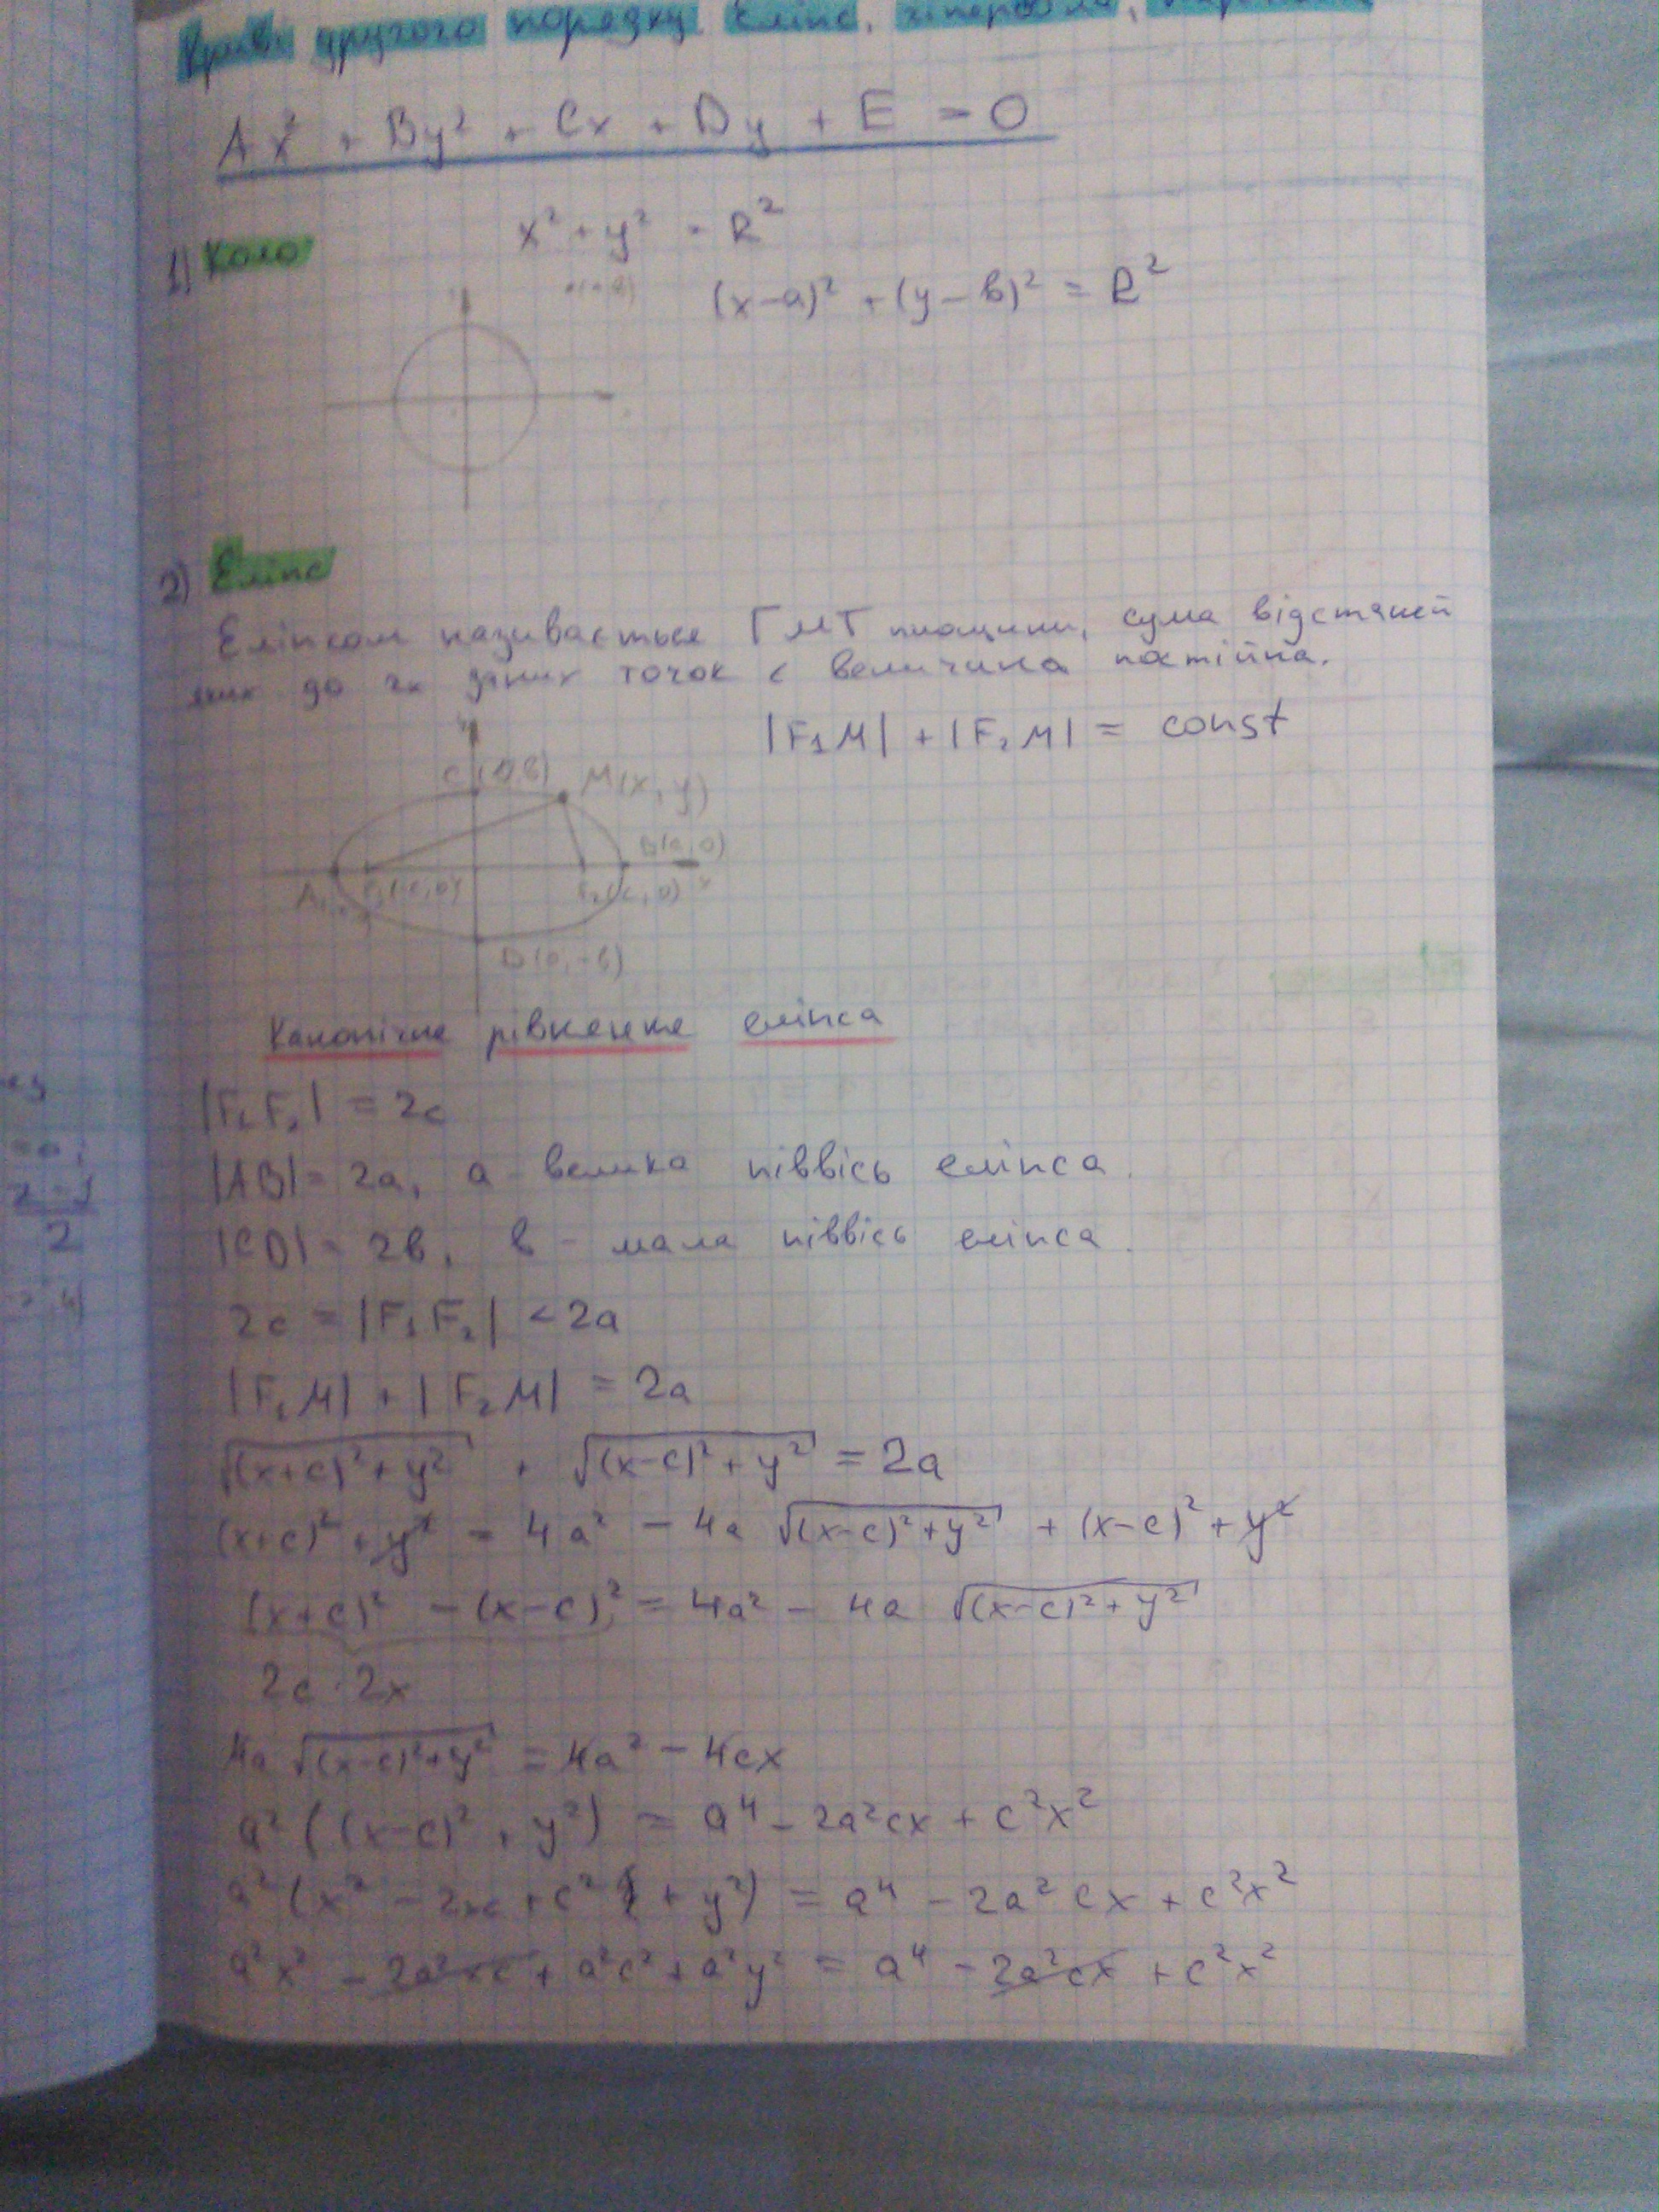 Криві другого порядку. Еліпс, гіпербола,
Ax² + By² + Cx + Dy + E = 0
1) Коло
x² + y² = R²
(x-a)² + (y-b)² = R²
2) Еліпс
Еліпсом називається ГМТ площини, сума відстаней
яких до 2х даних точок є величина постійна.
|F₁M| + |F₂M| = const
C(0,b) M(x,y)
B(a,0)
F₁(-c,0) F₂(c,0) x
D(0,-b)
Канонічне рівняння еліпса
|F₁F₂| = 2c
|AB| = 2a, a - велика піввісь еліпса.
|CD| = 2b, b - мала піввісь еліпса.
2c = |F₁F₂| < 2a
|F₁M| + |F₂M| = 2a
√((x+c)²+y²) + √((x-c)²+y²) = 2a
(x+c)² + y² = 4a² - 4a √((x-c)²+y²) + (x-c)² + y²
(x+c)² - (x-c)² = 4a² - 4a √((x-c)²+y²)
2c · 2x
4a √((x-c)²+y²) = 4a² - 4cx
a²((x-c)² + y²) = a⁴ - 2a²cx + c²x²
a²(x² - 2xc + c² + y²) = a⁴ - 2a²cx + c²x²
a²x² - 2a²xc + a²c² + a²y² = a⁴ - 2a²cx + c²x²